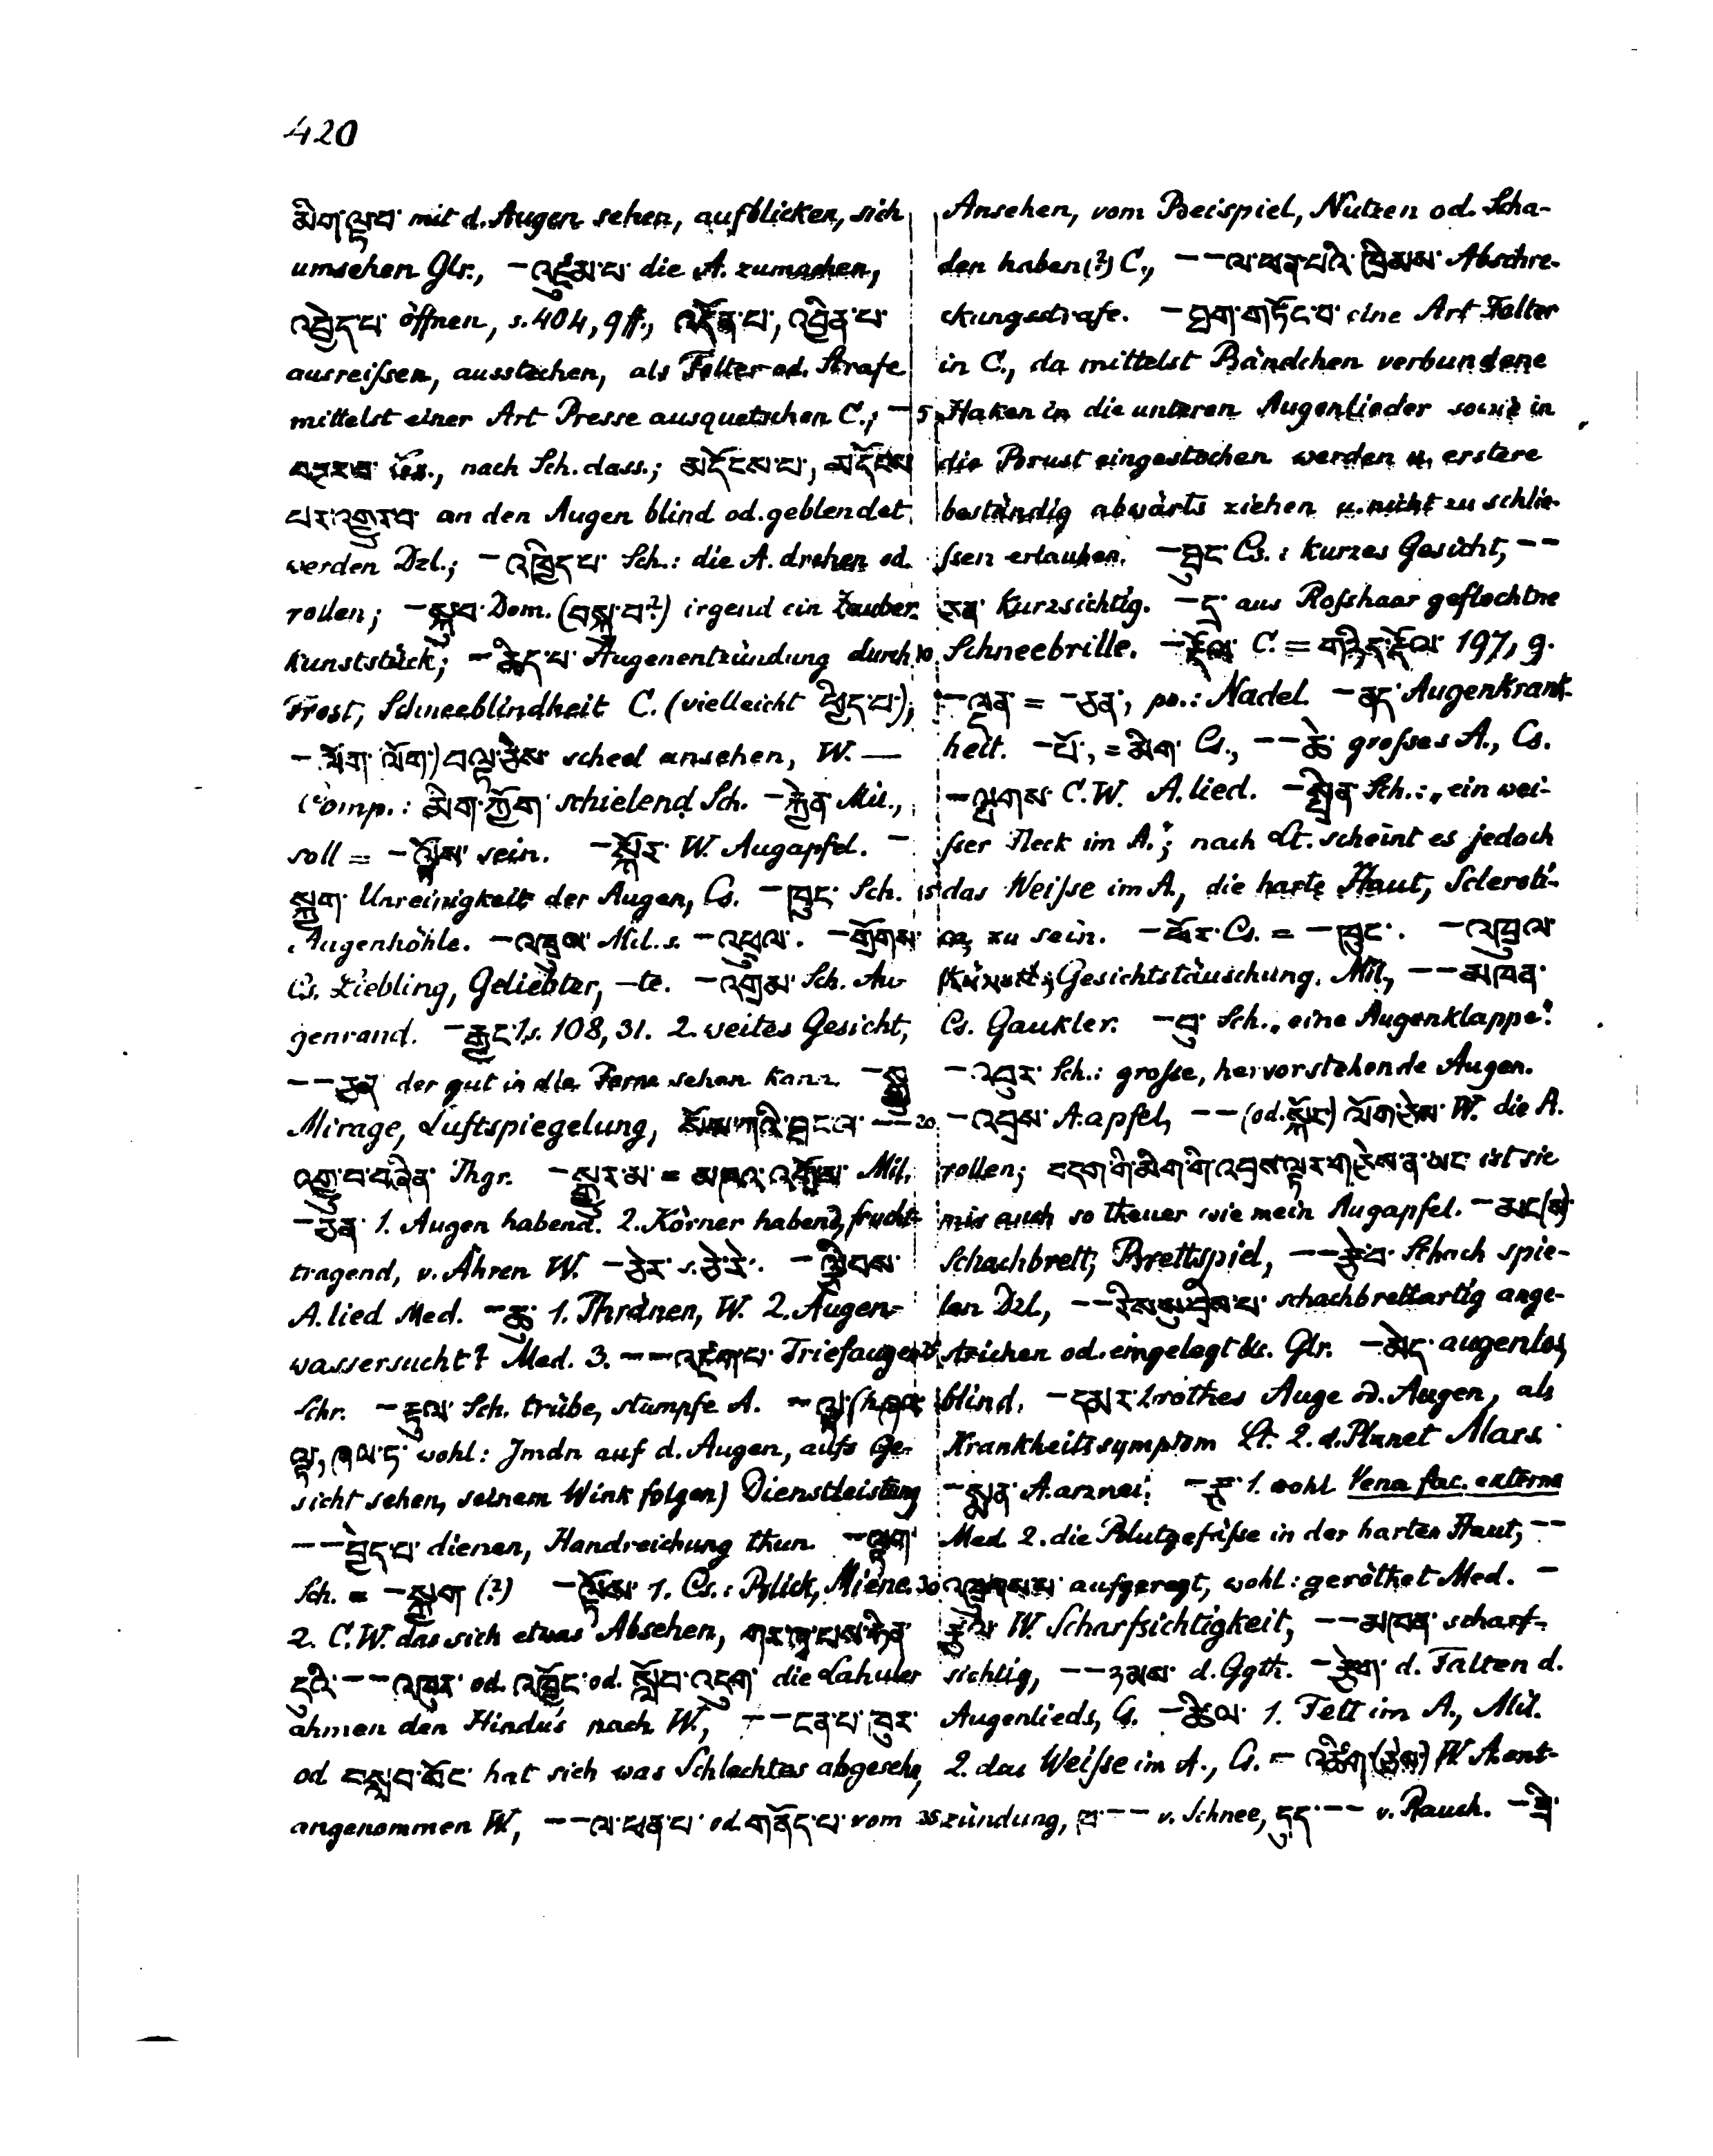 420
མིག་ལྟ་བ་ mit d. Augen sehen, aufblicken, sich
umsehen Glr., –འཛུམ་པ་ die A. zumachen,
འབྱེད་པ་ öffnen, s. 404, 9 ff., འདོན་པ་, འབྱིན་པ་
ausreißen, ausstechen, als Folter od. Strafe
mittelst einer Art Presse ausquetschen C.; –
nach Sch. dass.; མདོངས་པ་, མདོངས
པར་འགྱུར་བ་ an den Augen blind od. geblendet
werden Dzl.; – Sch.: die A. drehen od.
rollen; – Dom. irgend ein Zauber-
kunststück; – Augenentzündung durch 10
Frost, Schneeblindheit C. (vielleicht
– ལོག་ལོག་) བལྟ་ཅེས་ scheel ansehen, W. —
Comp.: མིག་ཀྱོག་ schielend Sch. –རྐྱེན་ Mil.,
soll = – sein. –སྐོར་ W. Augapfel. –
སྐྱག་ Unreinigkeit der Augen, Cs. –ཁུང་ Sch. 15
Augenhöhle. –འཁྲུལ་ Mil. s. –འཕྲུལ་. –གྲོགས་
Cs. Liebling, Geliebter, –te. – Sch. Au-
genrand. –རྒྱང་ 1. s. 108, 31. 2. weites Gesicht,
––ཅན་ der gut in die Ferne sehen kann. –སྒྱུ
Mirage, Luftspiegelung, –– 20
Thgr. –སྒྱུར་མ་ = Mil.
–ཅན་ 1. Augen habend. 2. Körner habend, frucht-
tragend, v. Ähren W. –ཅེར་ s. ཅེ་རེ་. –ལྕིབས་
A.lied Med. –ཆུ་ 1. Thränen, W. 2. Augen-
wassersucht? Med. 3. ––འཛག་པ་ Triefaugen 25
Schr. –རྟུལ་ Sch. trübe, stumpfe A. –ལྟ་
ལྟ, wohl: Jmdn auf d. Augen, aufs Ge-
sicht sehen, seinem Wink folgen) Dienstleistung
––བྱེད་པ་ dienen, Handreichung thun. –ལྟག་
Sch. = –སྐྱག (?) –ལྟོས་ 1. Cs.: Blick, Miene. 30
2. C. W. das sich etwas Absehen,
–– od. od. སློབ་འདུག་ die Lahuler
ahmen den Hindu's nach W., ––ངན་པ་ཁུར་
od བསླབ་སོང་ hat sich was Schlechtes abgesehn,
angenommen W., ––ལ་ཕན་པ་ od. གནོད་པ་ vom 35
Ansehen, vom Beispiel, Nutzen od. Scha-
den haben (?) C., ––ལ་ཕན་པའི་ཁྲིམས་ Abschre-
ckungsstrafe. –ཐག་གཏོང་བ་ eine Art Folter
in C., da mittelst Bändchen verbundene
5 Haken in die unteren Augenlieder sowie in
die Brust eingestochen werden u. erstere
beständig abwärts ziehen u. nicht zu schlie-
ssen erlauben. –ཐུང་ Cs.: kurzes Gesicht, ––
ཅན་ kurzsichtig. –དྲ་ aus Roßhaar geflochtne
Schneebrille. – C. = 197, 9.
–ལྡན་ = –ཅན་, po.: Nadel. –ནད་ Augenkrank-
heit. –པོ་, = མིག་ Cs., ––ཆེ་ großes A., Cs.
–ལྤགས་ C. W. A.lied. –སྤྲིན་ Sch.: „ein wei-
sser Fleck im A."; nach Lt. scheint es jedoch
das Weiße im A., die harte Haut, Scleroti-
ca, zu sein. –ཕོར་ Cs. = –ཁུང་. –འཕྲུལ་
Gesichtstäuschung. Mil., ––མཁན་
Cs. Gaukler. –བུ་ Sch. „eine Augenklappe".
–འབུར་ Sch.: große, hervorstehende Augen.
–འབྲས་ A.apfel, ––(od. སྐོང་) ལོག་ཅེས་ W. die A.
rollen; བདག་གི་མིག་གི་འབྲས་ལྟར་གཅེས་ན་ཡང་ ist sie
mir auch so theuer wie mein Augapfel. –མང(ས)་
Schachbrett, Brettspiel, ––རྩེ་བ་ Schach spie-
len Dzl., ––རིས་སུ་བྲིས་པ་ schachbrettartig ange-
strichen od. eingelegt &c. Glr. –མེད་ augenlos,
blind. –དམར་ 1. rothes Auge od. Augen, als
Krankheitssymptom Lt. 2. d. Planet Mars.
–སྨན་ A.arznei. –རྩ་ 1. wohl Vena fac. externa
Med. 2. die Blutgefäße in der harten Haut, ––
aufgeregt, wohl: geröthet Med. –
W. Scharfsichtigkeit, ––མཁན་ scharf-
sichtig, ––ཉམས་ d. Ggth. – d. Falten d.
Augenlieds, Cs. –ཚིལ་ 1. Fett im A., Mil.
2. das Weiße im A., Cs. – W. A.ent-
zündung, ཁ་–– v. Schnee, དུད་–– v. Rauch. –